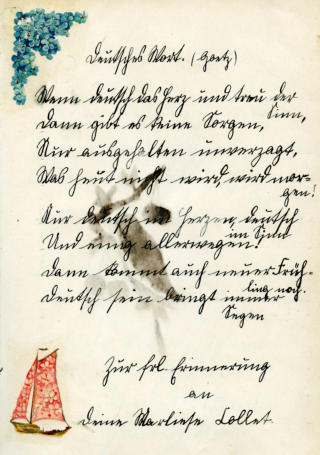 Deutsches Wort. (Goetz)
Wenn deutsch das Herz und treu der
Sinn,
Dann gibt es keine Sorgen,
Nur ausgehalten unverzagt,
Was heut nicht wird, wird mor-
gen!
Nur deutsch im Herzen, deutsch
im Sinn
Und einig allerwegen!
Dann kommt auch neuer Früh-
ling noch.
Deutsch sein bringt immer
Segen
Zur frl. Erinnerung
an
Deine Marliese Collet.